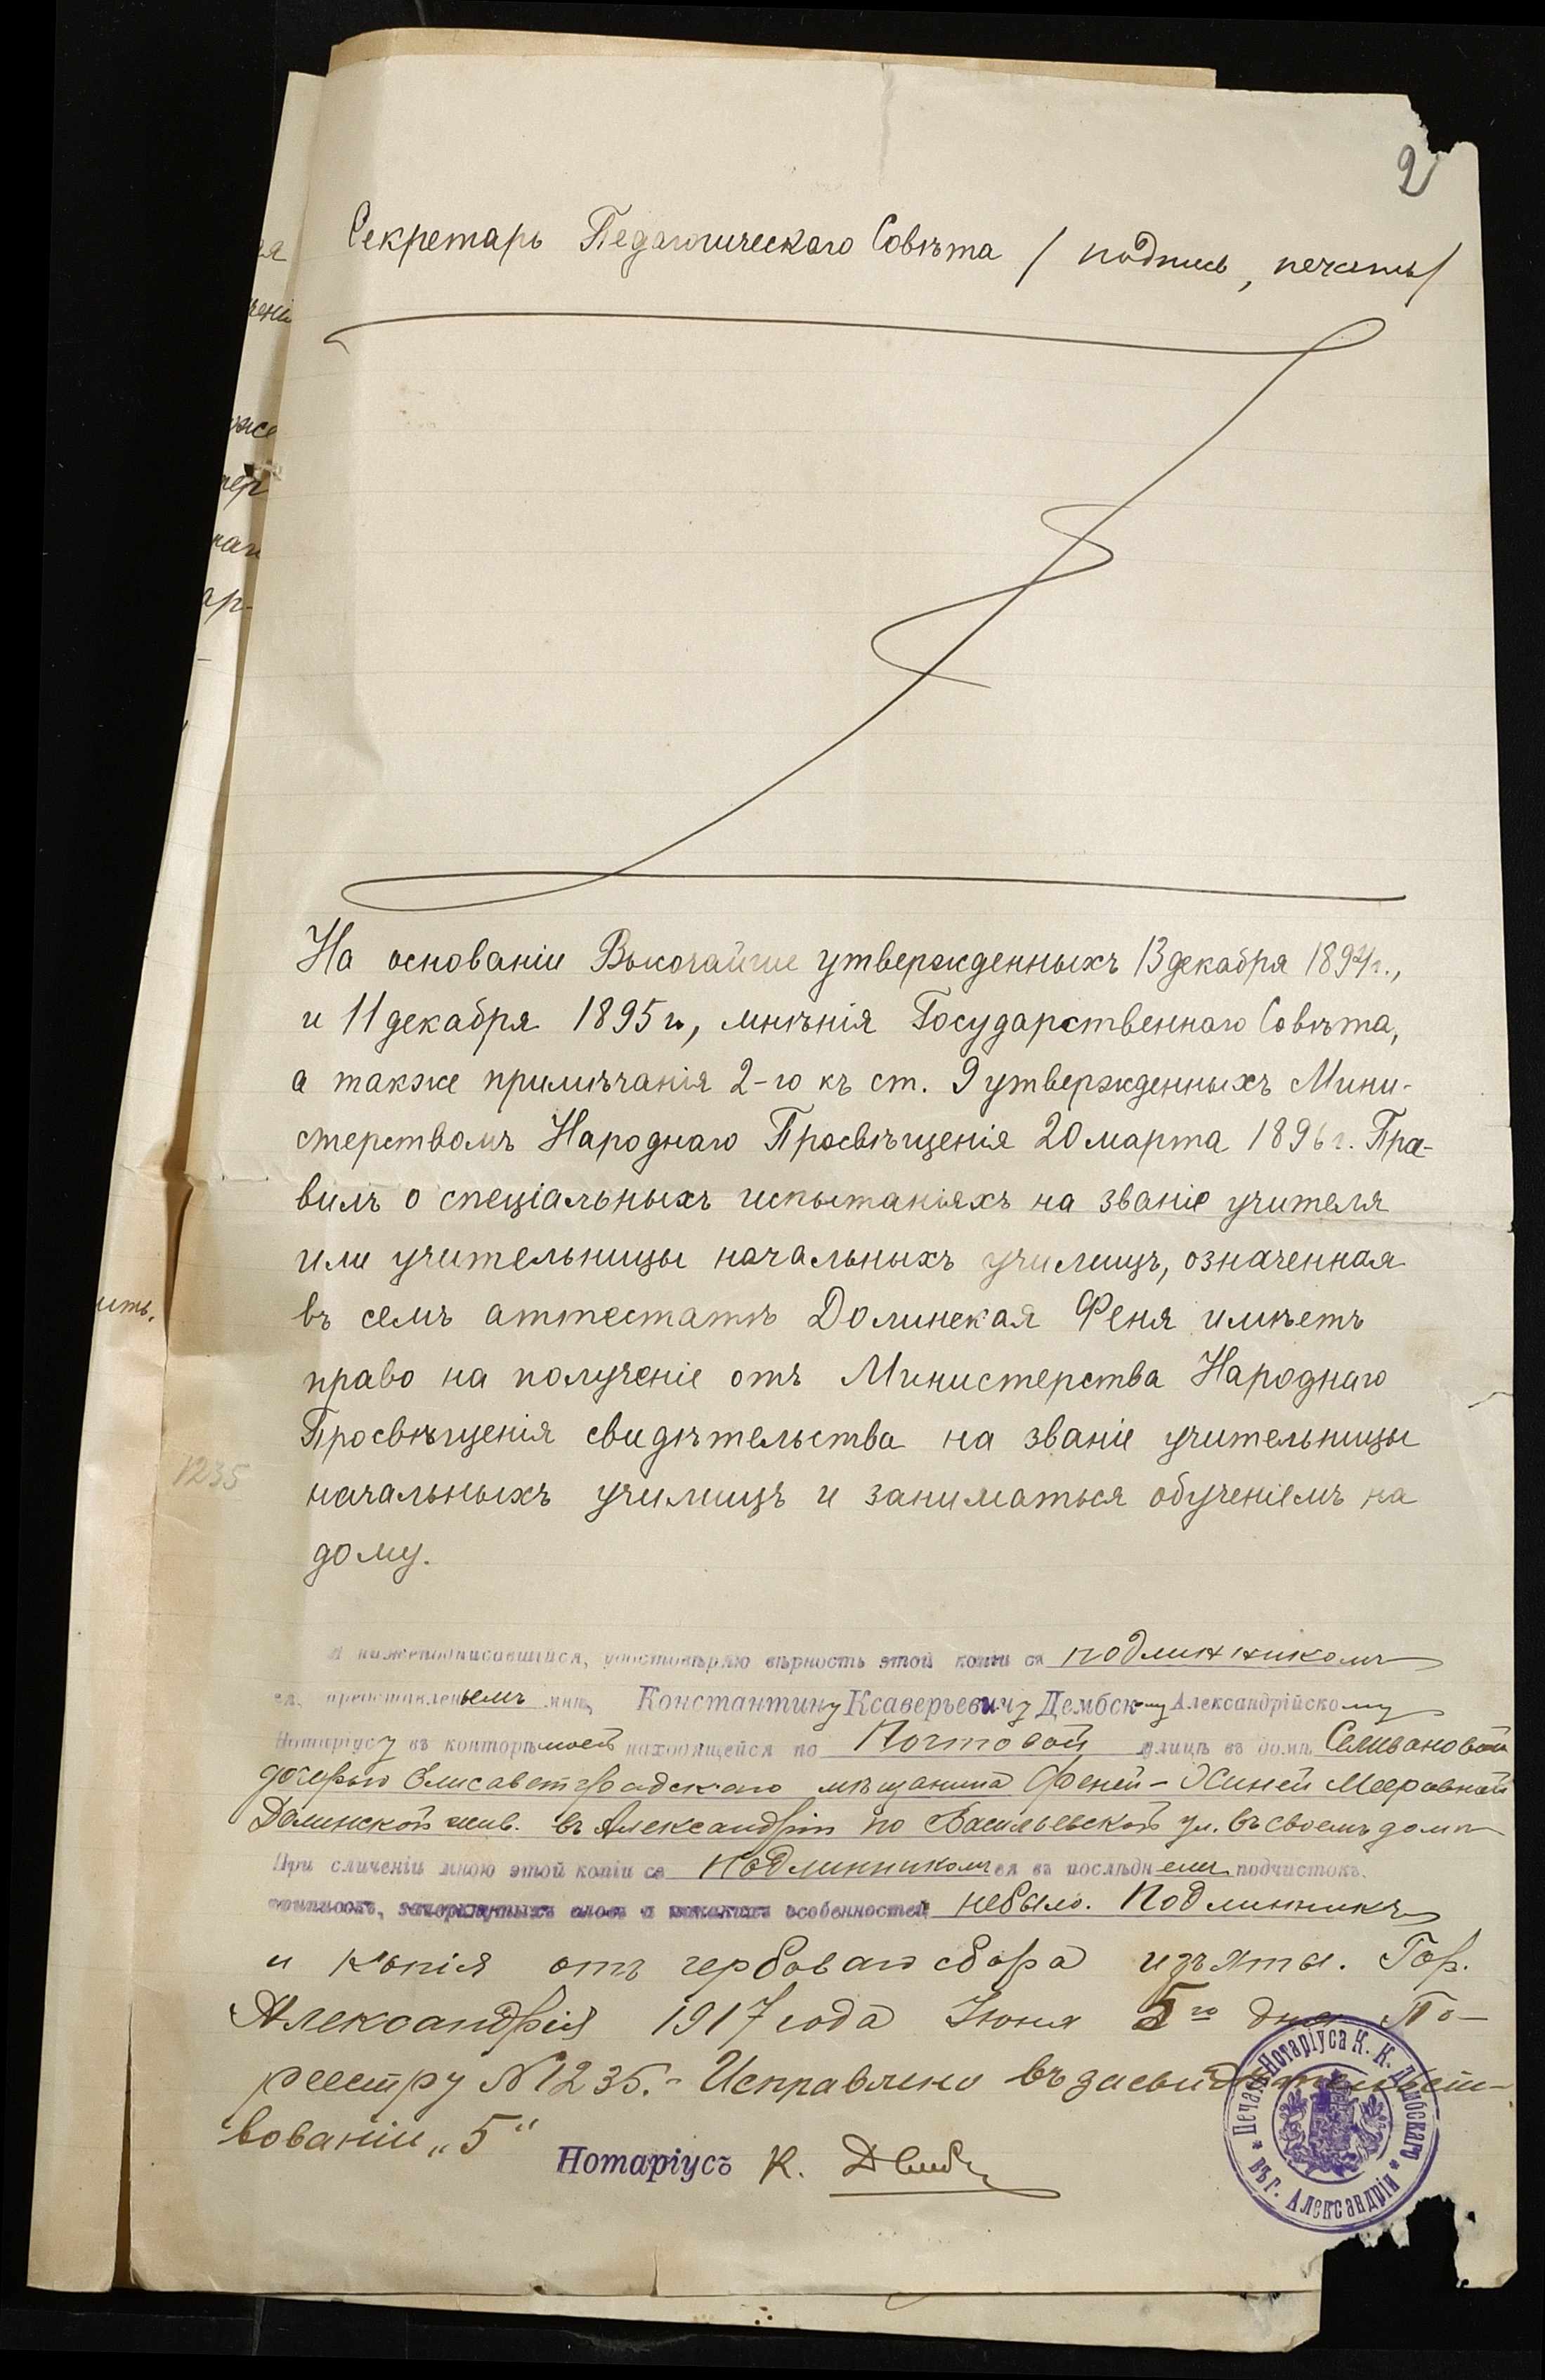 2
Секретарь Педагогическаго Совѣта / подпись, печать/
На основаніи Высочайше утвержденныхъ 13 декабря 1894 г.,
и 11 декабря 1895 г., мнѣнія Государственнаго Совѣта,
а также примѣчанія 2-го къ ст. 9 утвержденныхъ Мини-
стерствомъ Народнаго Просвѣщенія 20 марта 1896 г. Пра-
вилъ о спеціальныхъ испытаніяхъ на званіе учителя
или учительницы начальныхъ училищъ, означенная
въ семъ аттестатѣ Долинская Феня имѣетъ
право на полученіе отъ Министерства Народнаго
Просвѣщенія свидѣтельства на званіе учительницы
начальныхъ училищъ и заниматься обученіемъ на
дому.
1235
Я нижеподписавшійся, удостовѣряю вѣрность этой копіи съ подлинникомъ
его представленнымъ мнѣ, Константину Ксаверьевичу Дембскому Александрійскому
Нотаріусу въ конторѣ моей находящейся по Почтовой улицѣ въ домѣ Селивановой
дочерью Елисаветградскаго мѣщанина Феней-Хиней Мееровной
Долинской жив. въ Александріи по Васильевской ул. въ своемъ домѣ
При сличеніи мною этой копіи съ подлинникомъ въ послѣднемъ подчистокъ,
приписокъ, зачеркнутыхъ словъ и никакихъ особенностей не было. Подлинникъ
и копія отъ гербоваго сбора изъяты. Гор.
Александрія 1917 года Іюня 5го дня По
реестру № 1235.- Исправлено въ засвидѣтельст-
вованіи „5“
Нотаріусъ К. Дембскій
Печать Нотаріуса К. К. Дембскаго * въ г. Александріи *